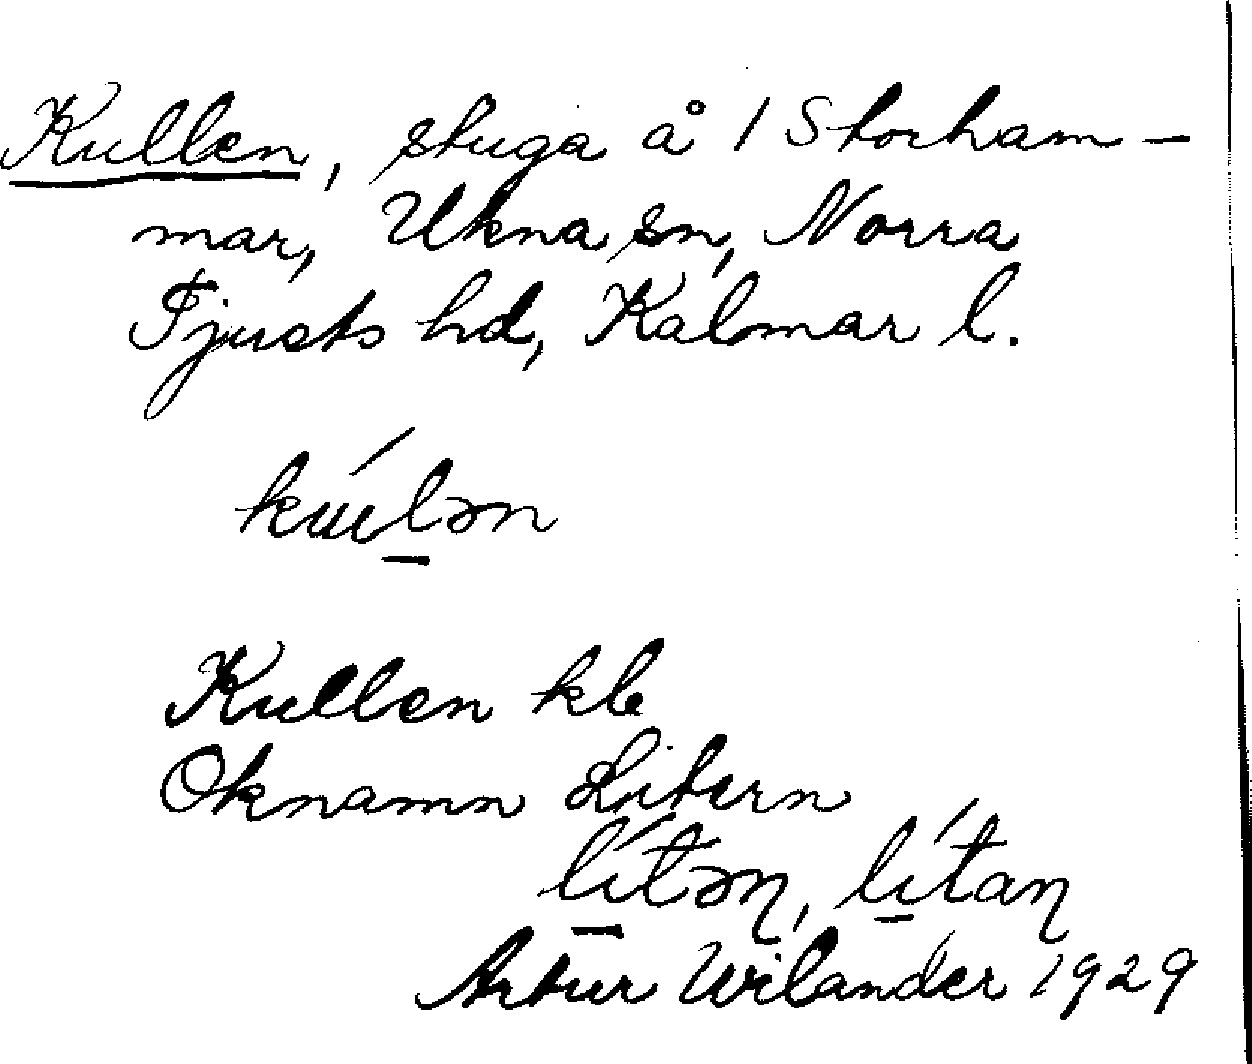 Kullen, stuga å 1 Storham-
mar, Ukna sn, Norra
Tjusts hd, Kalmar l.
kúlən
Kullen kb
Öknamn Litern
lítəɳ, lítaɳ
Artur Wilander 1929